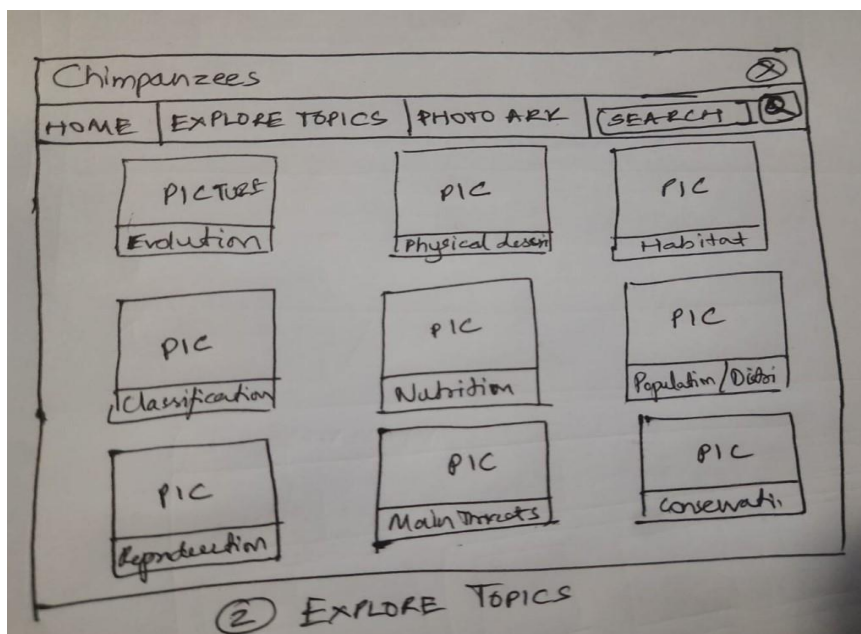 Chimpanzees X
HOME EXPLORE TOPICS PHOTO ARK SEARCH
PICTURE PIC PIC
Evolution Physical descri Habitat
PIC PIC PIC
Classification Nutrition Population/Distri
PIC PIC PIC
Reproduction Main Threats Conservati.
2 EXPLORE TOPICS